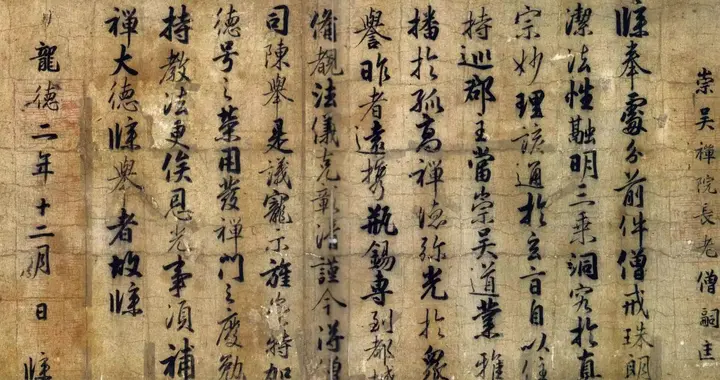 崇吳禪院長老僧嗣匡
牒奉處分前件僧戒珠朗
潔法性融明三乘洞究於真
宗妙理該通於玄言自以住
持巡郡主當崇吳道業雅
播於孤高禪德弥光於眾
譽昨者遠攜瓶錫專到都城
備觀法儀克彰謹今得
司陳舉是議寵示旌特加
德号之榮用發禪門之慶勉
持教法更俟恩光事須補
禪大德牒舉者故牒
龍德二年十二月 日 牒